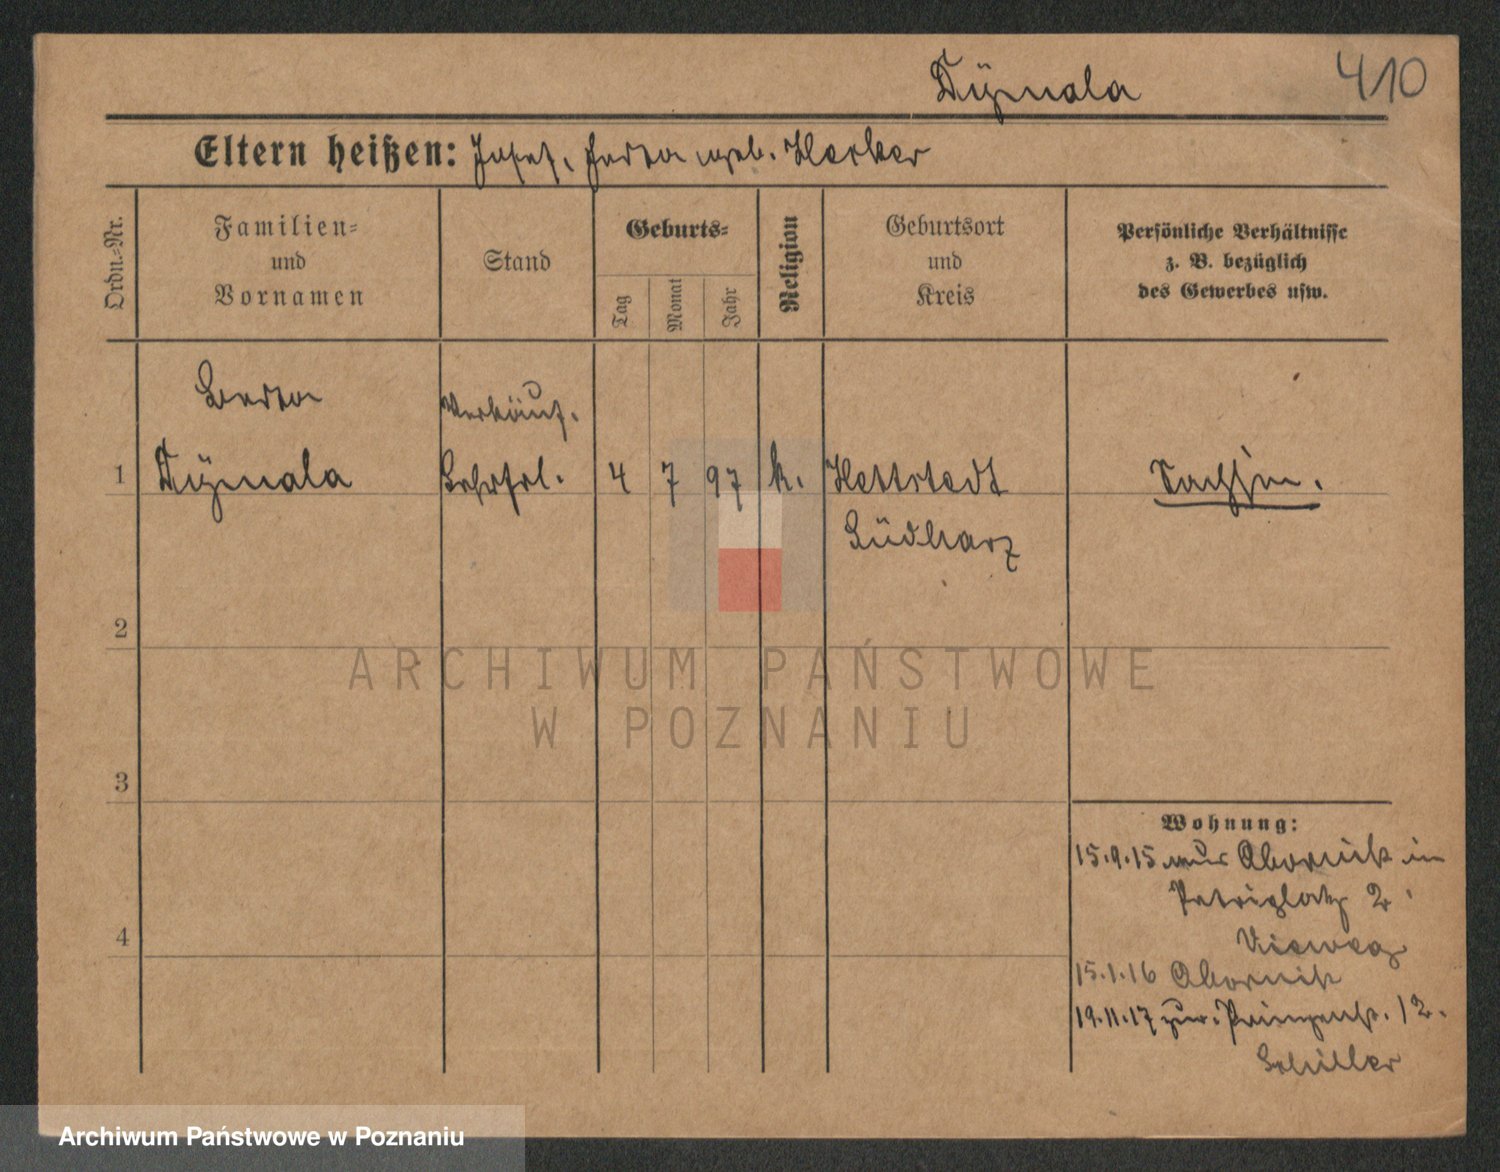 Dÿmala
410
Eltern heißen: Josef, geb. Herker
Ordn.-Nr.
Familien-
und
Vornamen
Stand
Geburts-
Tag
Monat
Jahr
Religion
Geburtsort
und
Kreis
Persönliche Verhältnisse
z. B. bezüglich
des Gewerbes usw.
Verkäuf.
1 Dÿmala Lehrfrl. 4 7 97 k. Hettstedt Sachsen.
Südharz
2
3
4
Wohnung:
15.9.15 aus Obornik in
Petriplatz 2.
Vieweg
15.1.16 Obornik
19.11.17 zur. Prinzenst. 12.
Schiller
ARCHIWUM PAŃSTWOWE
W POZNANIU
Archiwum Państwowe w Poznaniu